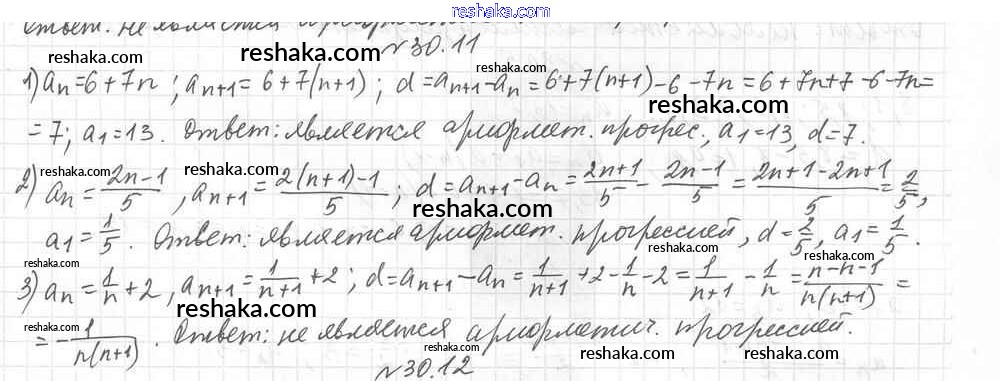 reshaka.com
Ответ: не является арифметической
reshaka.com
№30.11
reshaka.com
1) aₙ=6+7n; aₙ₊₁=6+7(n+1); d=aₙ₊₁-aₙ=6+7(n+1)-6-7n=6+7n+7-6-7n=
reshaka.com
reshaka.com
=7; a₁=13. Ответ: является арифмет. прогрес., a₁=13, d=7.
reshaka.com
reshaka.com
2) aₙ=(2n-1)/5, aₙ₊₁=(2(n+1)-1)/5; d=aₙ₊₁-aₙ=(2n+1)/5-(2n-1)/5=(2n+1-2n+1)/5=2/5,
reshaka.com
a₁=1/5. Ответ: является арифмет. прогрессией, d=2/5, a₁=1/5.
reshaka.com
reshaka.com
3) aₙ=1/n+2, aₙ₊₁=1/(n+1)+2; d=aₙ₊₁-aₙ=1/(n+1)+2-1/n-2=1/(n+1)-1/n=(n-n-1)/(n(n+1))=
reshaka.com
reshaka.com
=-1/(n(n+1)). Ответ: не является арифметич. прогрессией.
reshaka.com
№30.12
reshaka.com